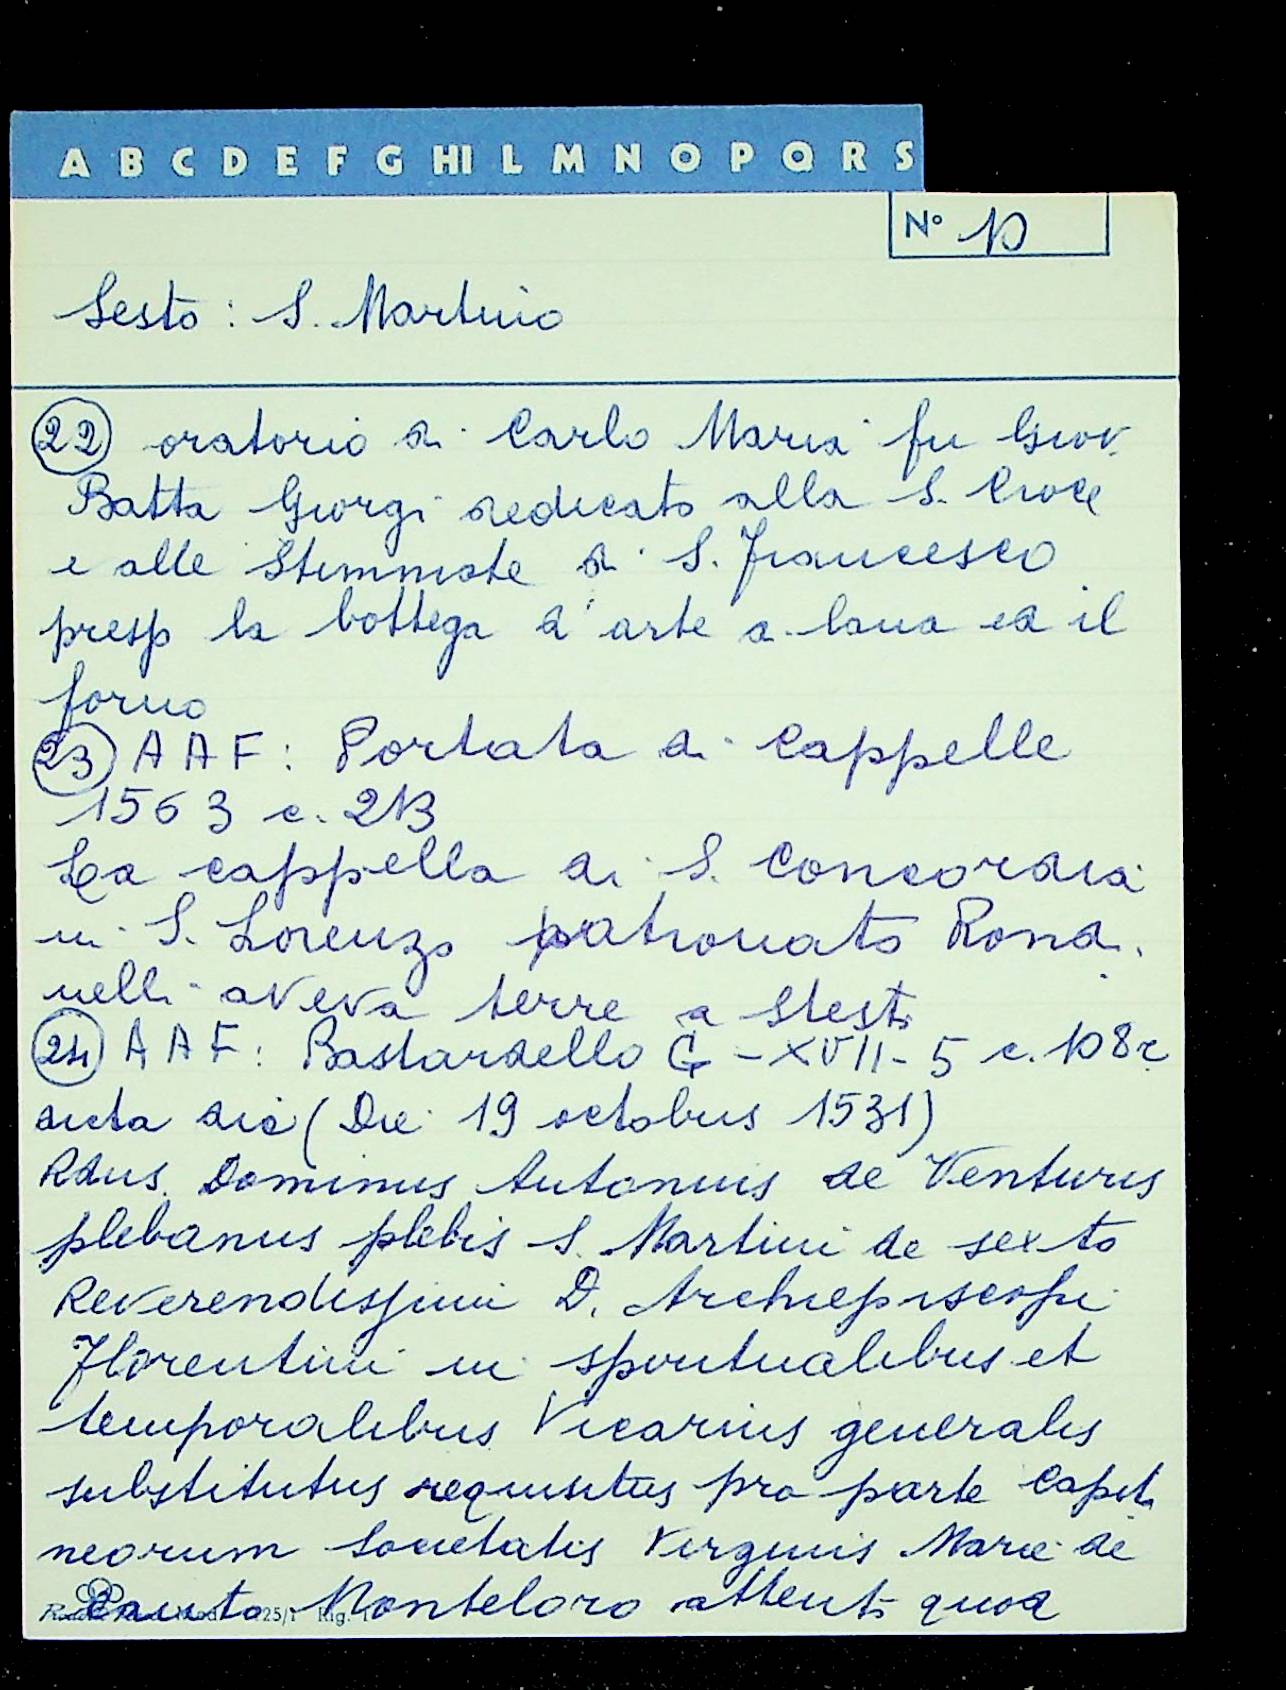 A B C D E F G HI L M N O P Q R S
N° 10
Sesto: S. Martino
22 oratorio di Carlo Maria fu Giov.
Batta Giorgi dedicato alla S. Croce
e alle Stimmate di S. Francesco
presso la bottega d'arte a lana ed il
forno
23 AAF: Portata di Cappelle
1563 c. 213
La cappella di S. Concordia
in S. Lorenzo patronato Rondi
nelli aveva terre a Sesto
24 AAF: Bastardello G-XVII-5 c. 108r
dicta die (Die 19 octobris 1531)
Rdus. Dominus Antonius de Venturis
plebanus plebis S. Martini de sexto
Reverendissimi D. Archiepiscopi
Florentini in spiritualibus et
temporalibus Vicarius generalis
substitutus requisitus pro parte Capit
neorum Societatis Virginis Marie de
Monteloro attenti quod